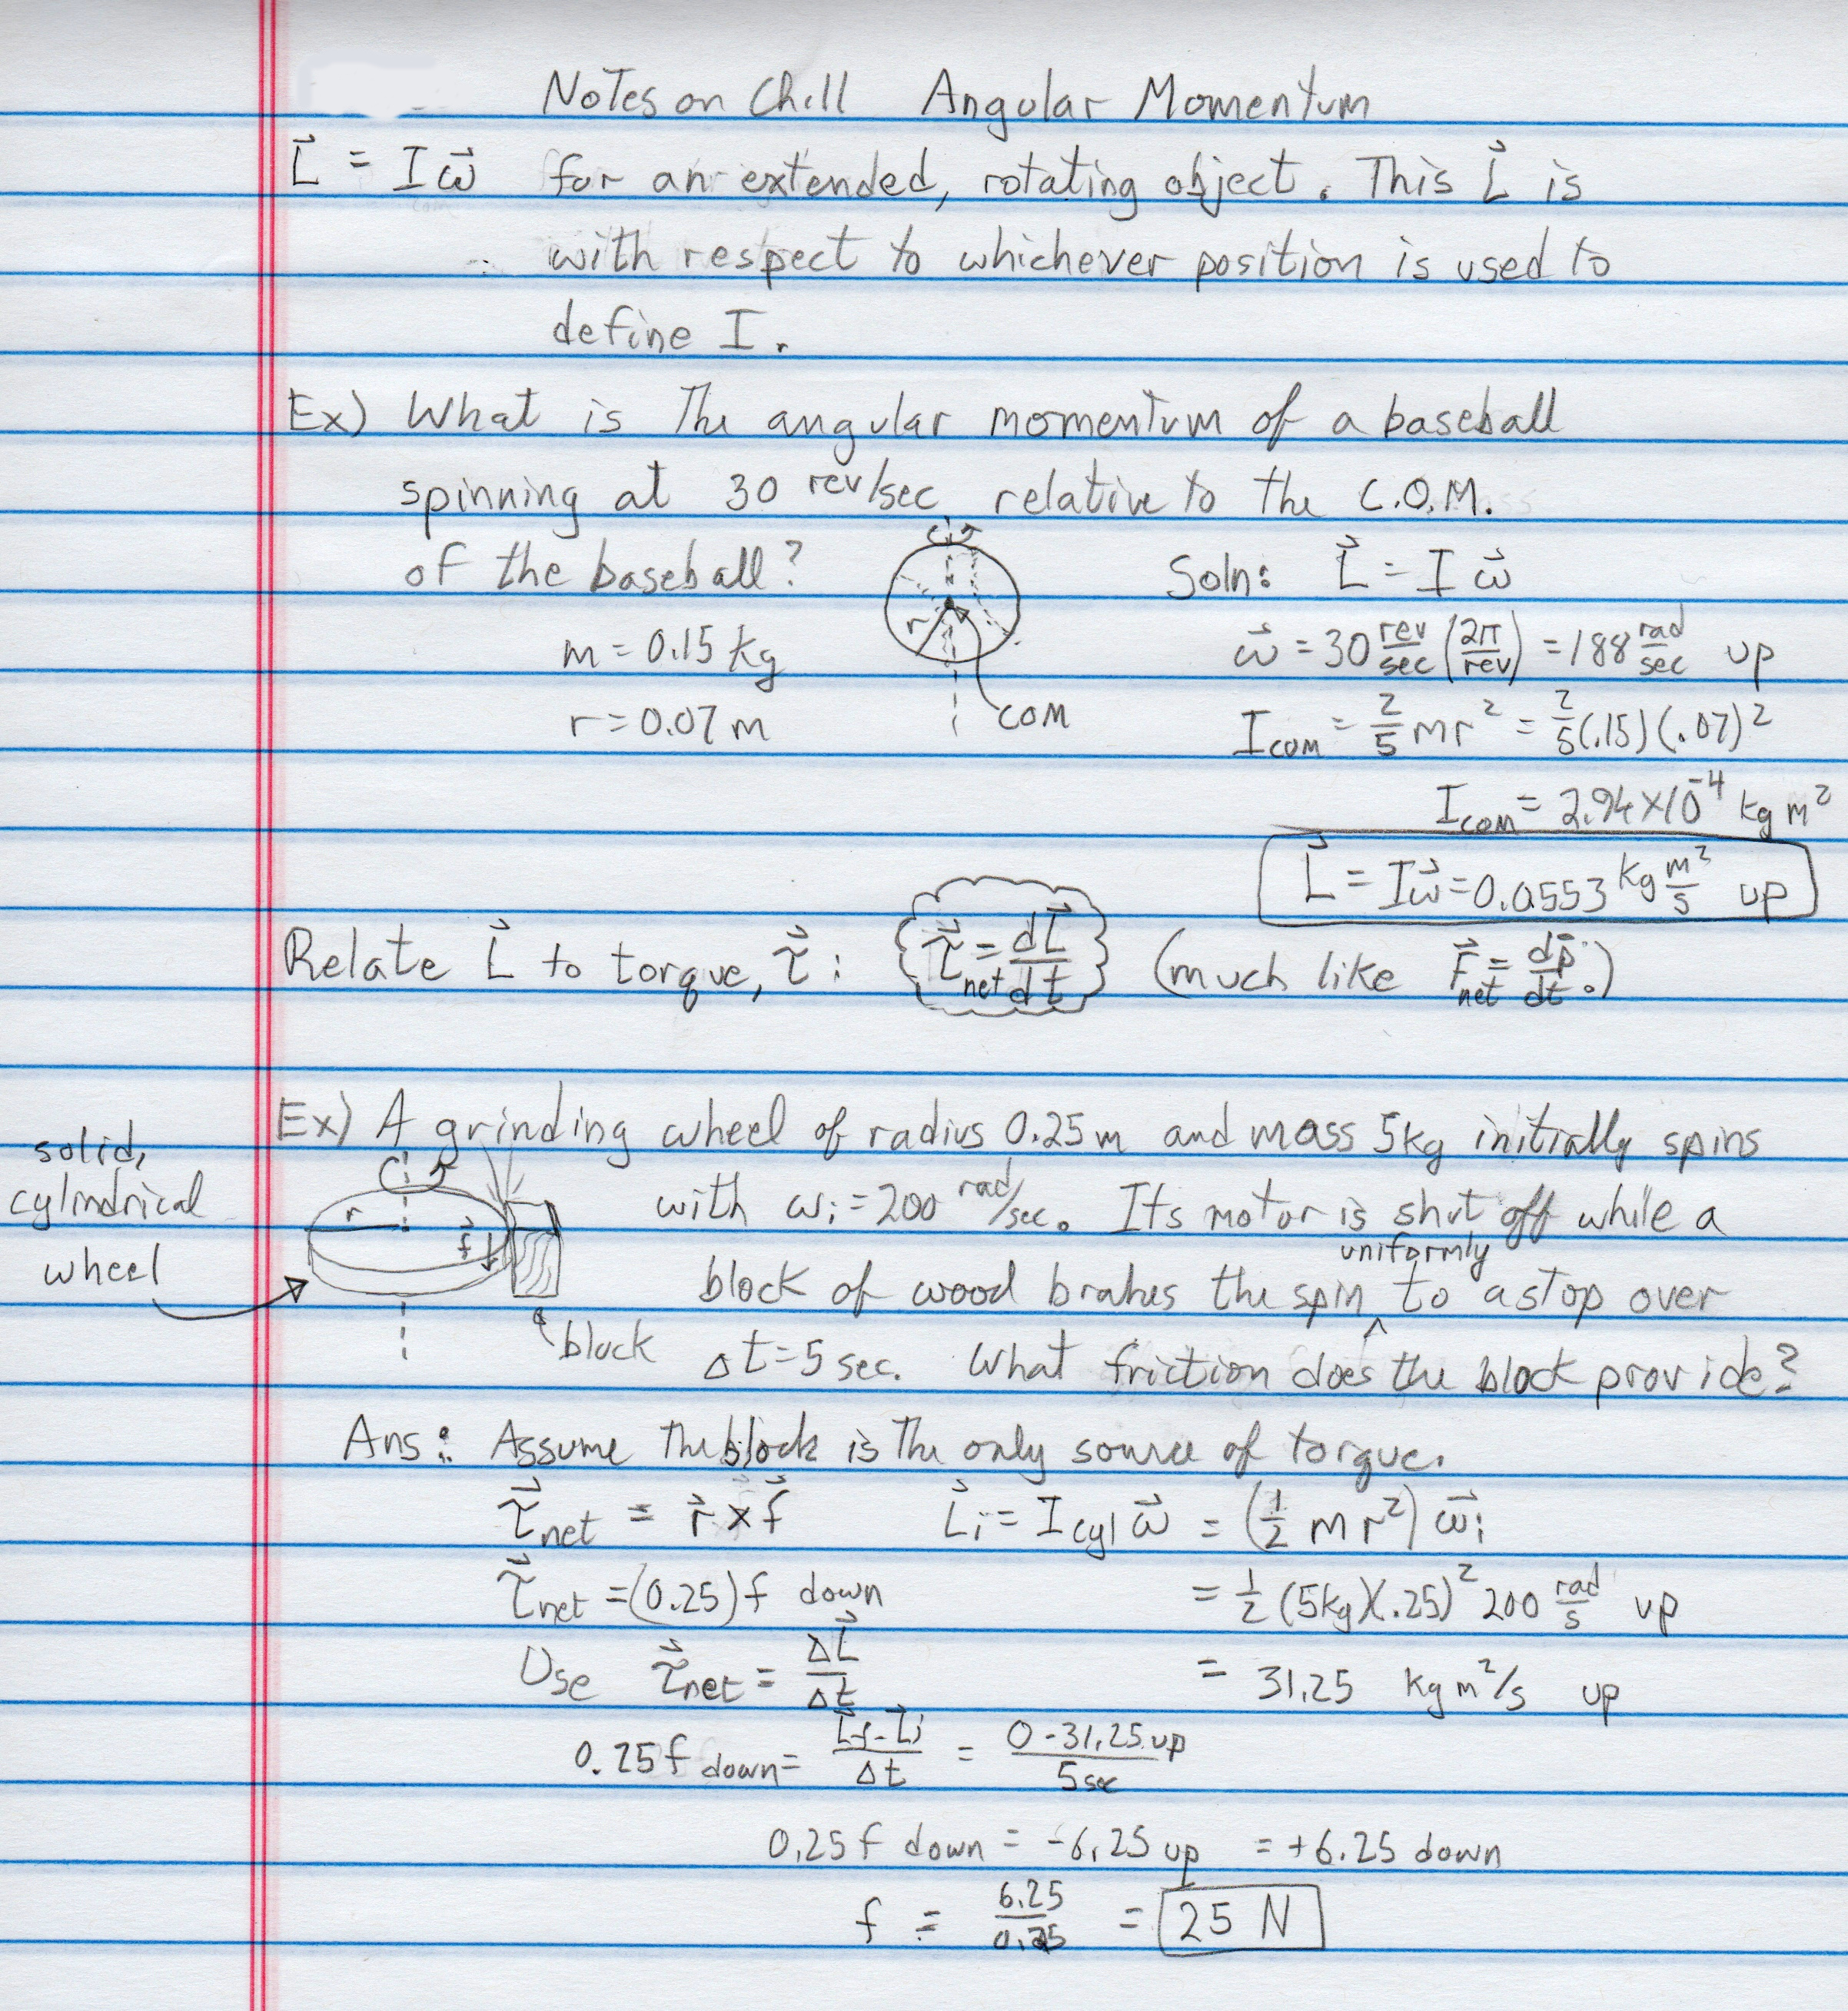 Notes on Ch11 Angular Momentum
L⃗ = Iω⃗ for an extended, rotating object. This L⃗ is
with respect to whichever position is used to
define I.
Ex) What is the angular momentum of a baseball
spinning at 30 rev/sec relative to the C.O.M.
of the baseball?
r
COM
m = 0.15 kg
r = 0.07 m
Soln: L⃗ = I ω⃗
ω⃗ = 30 rev/sec (2π/rev) = 188 rad/sec up
Icom = 2/5 mr² = 2/5(.15)(.07)²
Icom = 2.94×10⁻⁴ kg m²
L⃗ = Iω⃗ = 0.0553 kg m²/s up
Relate L⃗ to torque, τ⃗ : τ⃗net = dL⃗/dt (much like F⃗net = dp⃗/dt.)
Ex) A grinding wheel of radius 0.25m and mass 5kg initially spins
with ωi = 200 rad/sec. Its motor is shut off while a
uniformly
block of wood brakes the spin ^ to a stop over
Δt = 5 sec. What friction does the block provide?
solid,
cylindrical
wheel
r
f⃗
block
Ans: Assume the block is the only source of torque.
τ⃗net = r⃗ × f⃗ L⃗i = Icyl ω⃗ = (1/2 mr²) ω⃗i
τ⃗net = (0.25)f down = 1/2 (5kg)(.25)² 200 rad/s up
Use τ⃗net = ΔL⃗/Δt = 31.25 kg m²/s up
0.25f down = L⃗f-L⃗i/Δt = 0-31.25 up/5 sec
0.25f down = -6.25 up = +6.25 down
f = 6.25/0.25 = 25 N